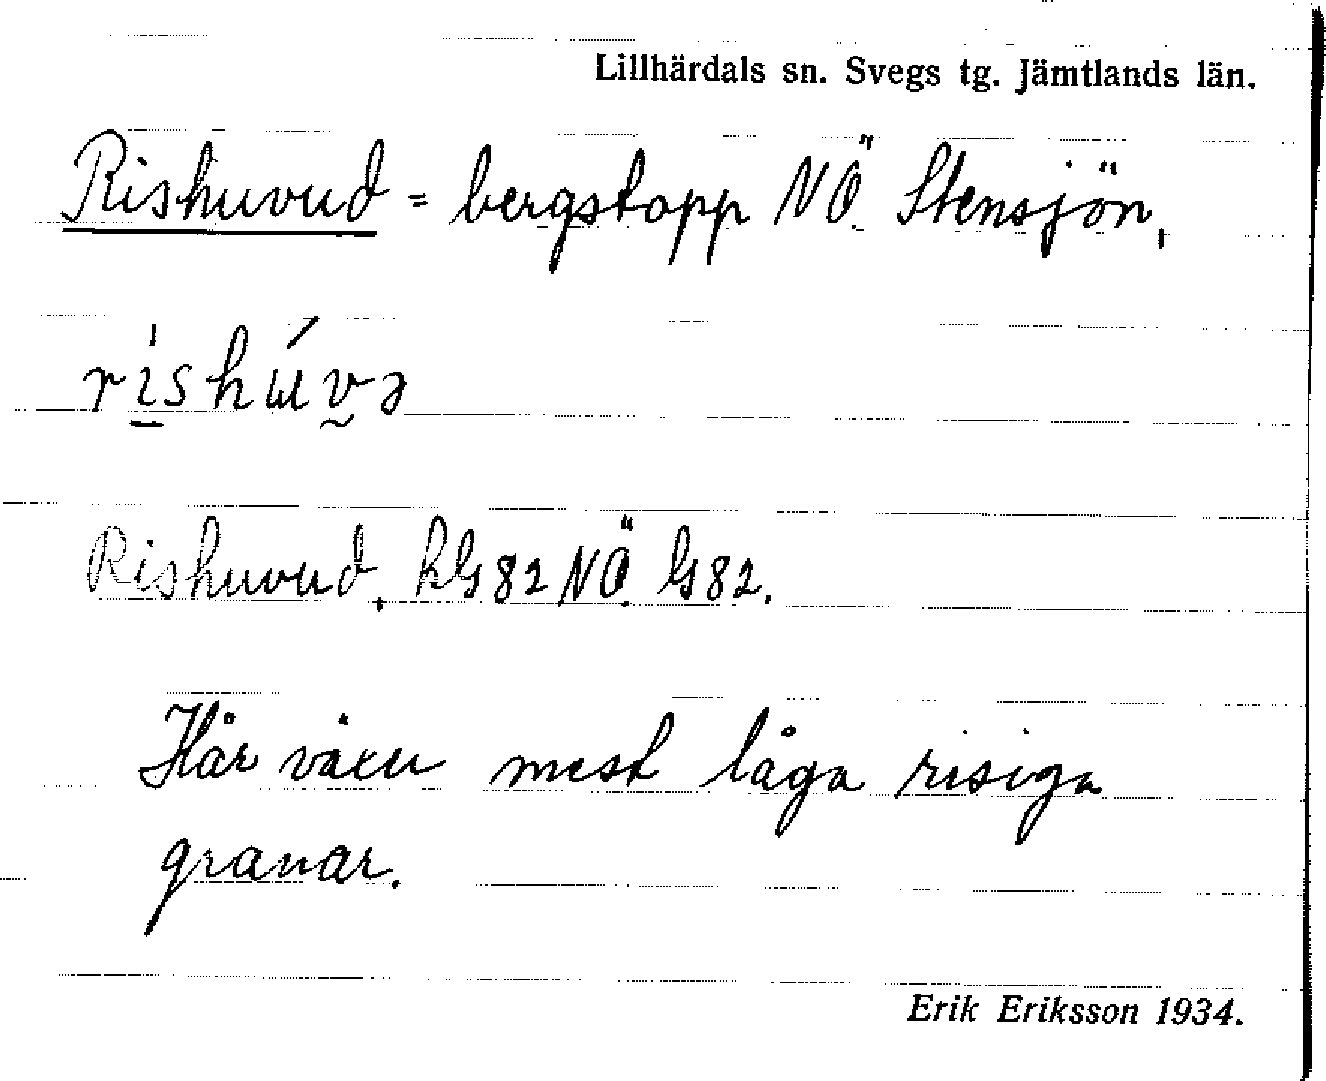 Lillhärdals sn. Svegs tg. Jämtlands län.
Rishuvud = bergstopp NÖ. Stensjön,
ríshúvə
Rishuvud, hG82 NÖ. G82.
Här växer mest låga risiga
granar.
Erik Eriksson 1934.